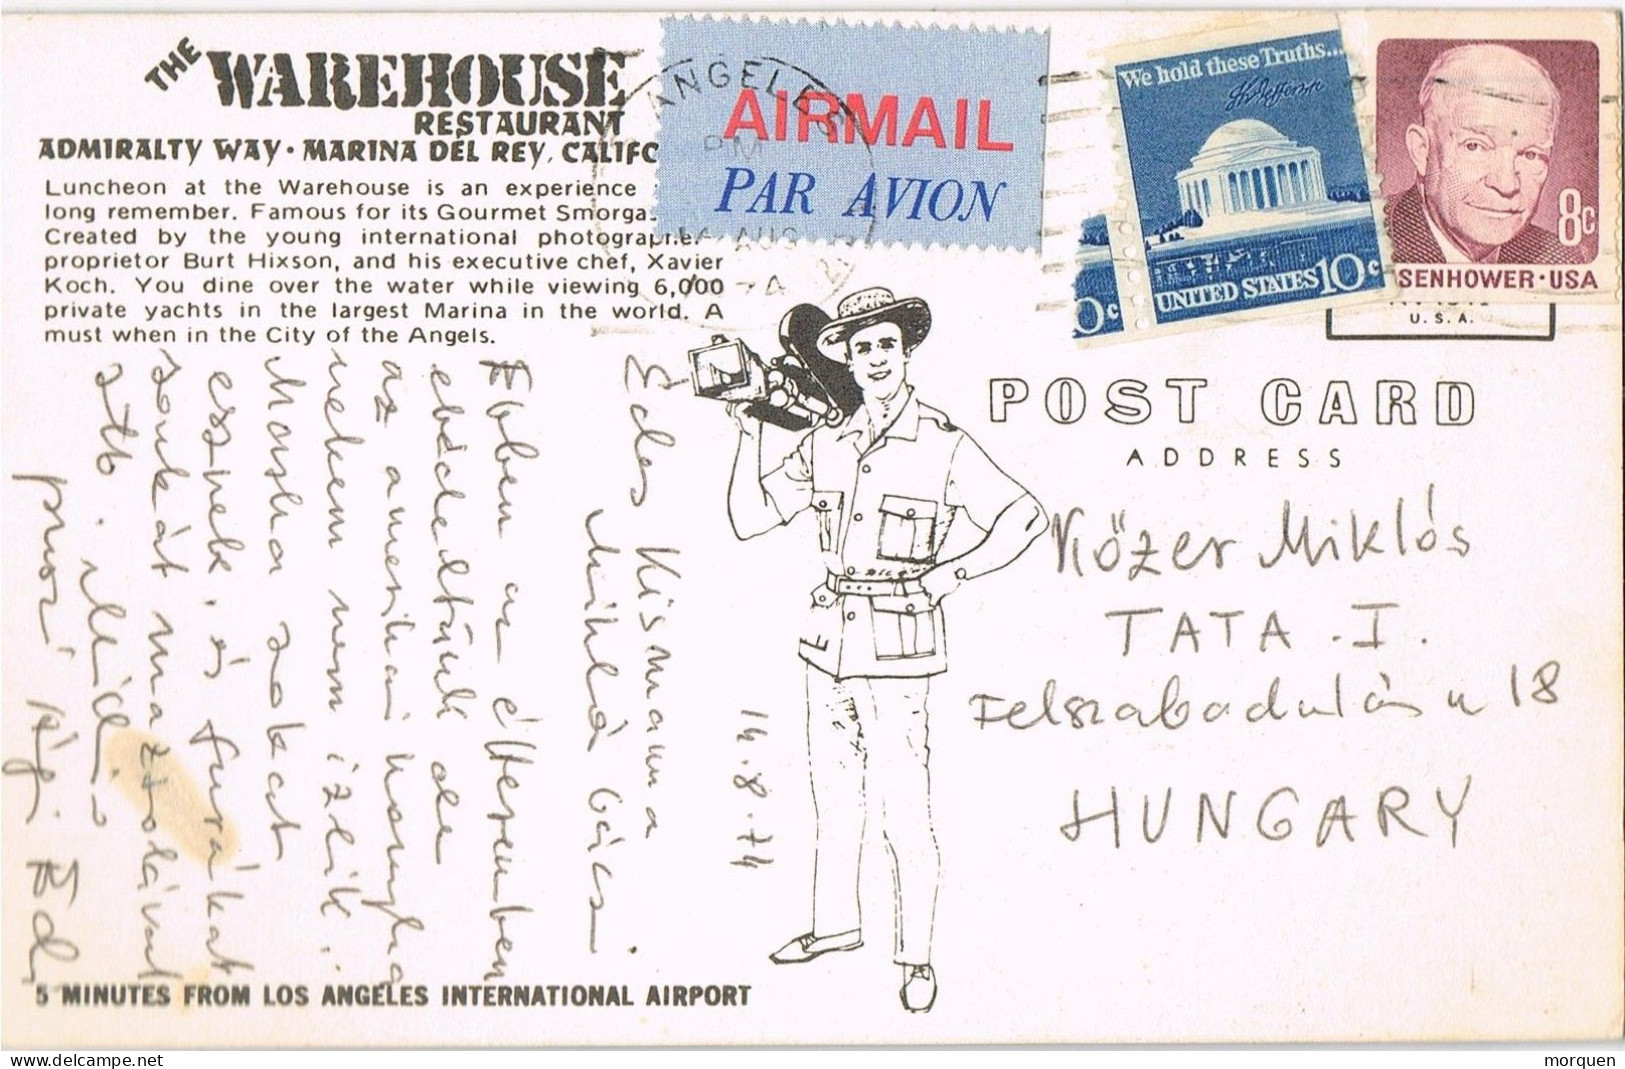 THE WAREHOUSE
RESTAURANT
ADMIRALTY WAY · MARINA DEL REY, CALIFO
Luncheon at the Warehouse is an experience
long remember. Famous for its Gourmet Smorgas
Created by the young international photographer-
proprietor Burt Hixson, and his executive chef, Xavier
Koch. You dine over the water while viewing 6,000
private yachts in the largest Marina in the world. A
must when in the City of the Angels.
ANGELES
PM
AUG
AIRMAIL
PAR AVION
We hold these Truths...
UNITED STATES 10c
0c
8c
SENHOWER · USA
U. S. A.
POST CARD
ADDRESS
Kőzer Miklós
TATA. I.
Felszabadulás u 18
HUNGARY
14.8.74
Édes Kismama
Miklós bácsi
Ebben az étteremben
ebédeltünk de
az amerikai konyha
nekem nem ízlik.
Mártást sokat
esznek. és furákat
sonkát mazsolával
stb.
pusz Ági Ed
5 MINUTES FROM LOS ANGELES INTERNATIONAL AIRPORT
morquen